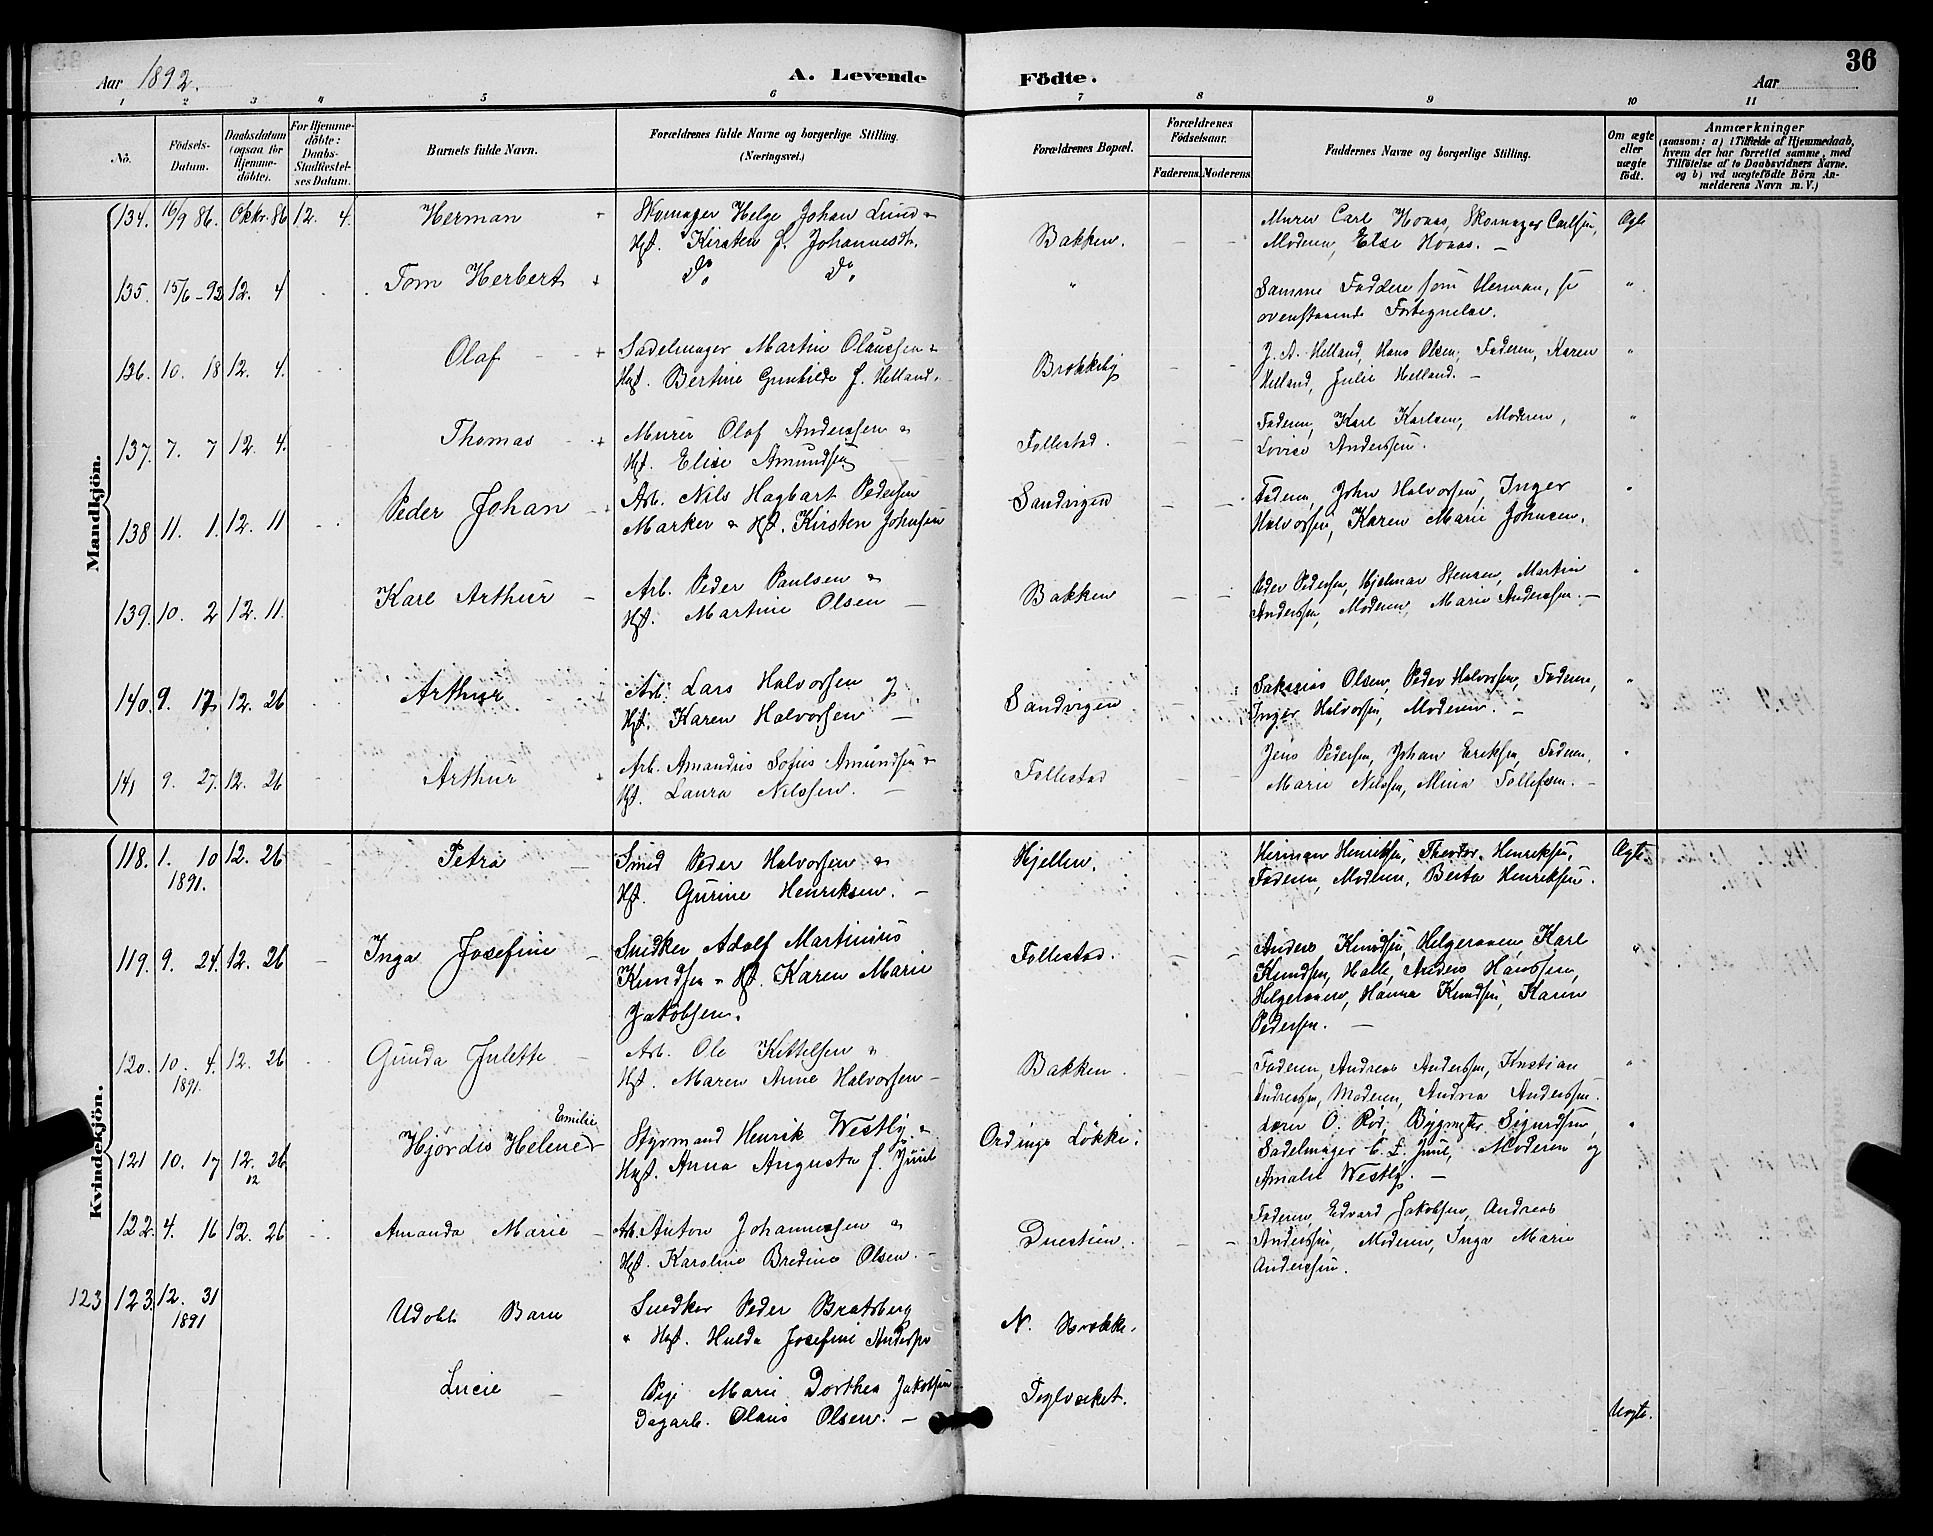 36
Aar 1892.
A. Levende Födte.
Aar
1 2 3 4 5 6 7 8 9 10 11
No.
Födsels-Datum.
Daabsdatum (ogsaa for Hjemme-döbte).
For Hjemme-döbte: Daabs-Stadfæstel-ses Datum.
Barnets fulde Navn.
Forældrenes fulde Navne og borgerlige Stilling. (Næringsvei.)
Forældrenes Bopæl.
Forældrenes Födselsaar.
Faderens. Moderens
Faddernes Navne og borgerlige Stilling.
Om ægte eller uægte födt.
Anmærkninger
(saasom: a) i Tilfælde af Hjemmedaab,
hvem der har forrettet samme, med
Tilföielse af to Daabsvidners Navne.
og b) ved uægtefödte Börn An-
melderens Navn m. V.)
Mandkjön.
134. 16/9 86. Oktr. 86 12. 4. Herman
Skomager Helge Johan Lund
Hst. Kirsten f. Johannesdt.
Bakken.
Murer Carl Honas, Skomager Carlsen,
Moderen, Else Honas. —
Ægte
135. 15/6-92 12. 4 Tom Herbert
Do Do
"
Samme Faddere som Herman, se
ovenstaaende Fortegnelse.
"
136. 10. 18 12. 4. Olaf
Sadelmager Martin Olaussen
Hst. Bertine Gunhilde f. Helland.
Brekkeby
J. A. Helland, Hans Olsen, Faderen, Karen
Helland, Julie Helland. —
"
137. 7. 7 12. 4. Thomas
Murer Olaf Anderssen
Hst. Elise Amundsen
Follestad.
Faderen, Karl Karlsen, Moderen,
Lovise Anderssen.
"
138 11. 1. 12. 11 Peder Johan
Arb. Nils Hagbart Pedersen
Marker & Hst. Kirsten Johnsen
Sandvigen
Faderen, John Halvorsen, Inger
Halvorsen, Karen Marie Johnsen.
"
139. 10. 2 12. 11. Karl Arthur
Arb. Peder Paulsen
Hst. Martine Olsen
Bakken
Peder Pedersen, Hjelmar Stensen, Martin
Anderssen, Moderen, Marie Anderssen. —
"
140. 9. 17 12. 26 Arthur
Arb. Lars Halvorsen og
Hst. Karen Halvorsen
Sandvigen
Sakarias Olsen, Peder Halvorsen, Faderen,
Inger Halvorsen, Moderen. —
"
141 9. 27. 12. 26 Arthur
Arb. Amandus Sofus Amundsen
Hst. Laura Nilssen.
Follestad
Jens Pedersen, Johan Eriksen, Faderen,
Marie Nilssen, Mina Tollefsen. —
"
Kvindekjön.
118. 1. 10 1891. 12. 26 Petra
Smed Peder Halvorsen
Hst. Gurine Henriksen.
Hjellen.
Herman Henriksen, Theodor Henriksen,
Faderen, Moderen, Berta Henriksen.
Ægte
119. 9. 24. 12. 26 Inga Josefine
Snedker Adolf Martinius
Knudsen Hst. Karen Marie
Jakobsen.
Follestad.
Anders Knudsen, Helgeroaen Karl
Knudsen, Halle, Anders Hanssen,
Helgeroaen, Hanna Knudsen, Karen
Pedersen. —
"
120. 10. 4. 1891. 12. 26 Gunda Julette
Arb. Ole Kittelsen
Hst. Maren Anne Halvorsen
Bakken.
Faderen, Andreas Anderssen, Kristian
Anderssen, Moderen, Andrea Anderssen.
"
121 10. 17 12. 26 12 Hjördis Helene Emilie
Styrmand Henrik Westby
Hst. Anna Augusta f. Juul
Ordings Løkke.
Lærer O. Rød, Bygmester Sigurdsen,
Sadelmager C. L. Juul, Moderen og
Amalie Westby. —
"
122. 4. 16 12. 26 Amanda Marie
Arb. Anton Johannessen
Hst. Karoline Bredine Olsen.
Faderen, Edvard Jakobsen, Andreas
Anderssen, Moderen, Inga Marie
Anderssen.
123 123. 12. 31 1891 Udöbt Barn
Snedker Peder Bratsberg
Hst. Hulda Josefine Anderssen
N. Brekke.
Lucie
Pige Marie Dorthea Jakobsen
Dagarb. Olaus Olsen. —
Teglverket.
Uægte.